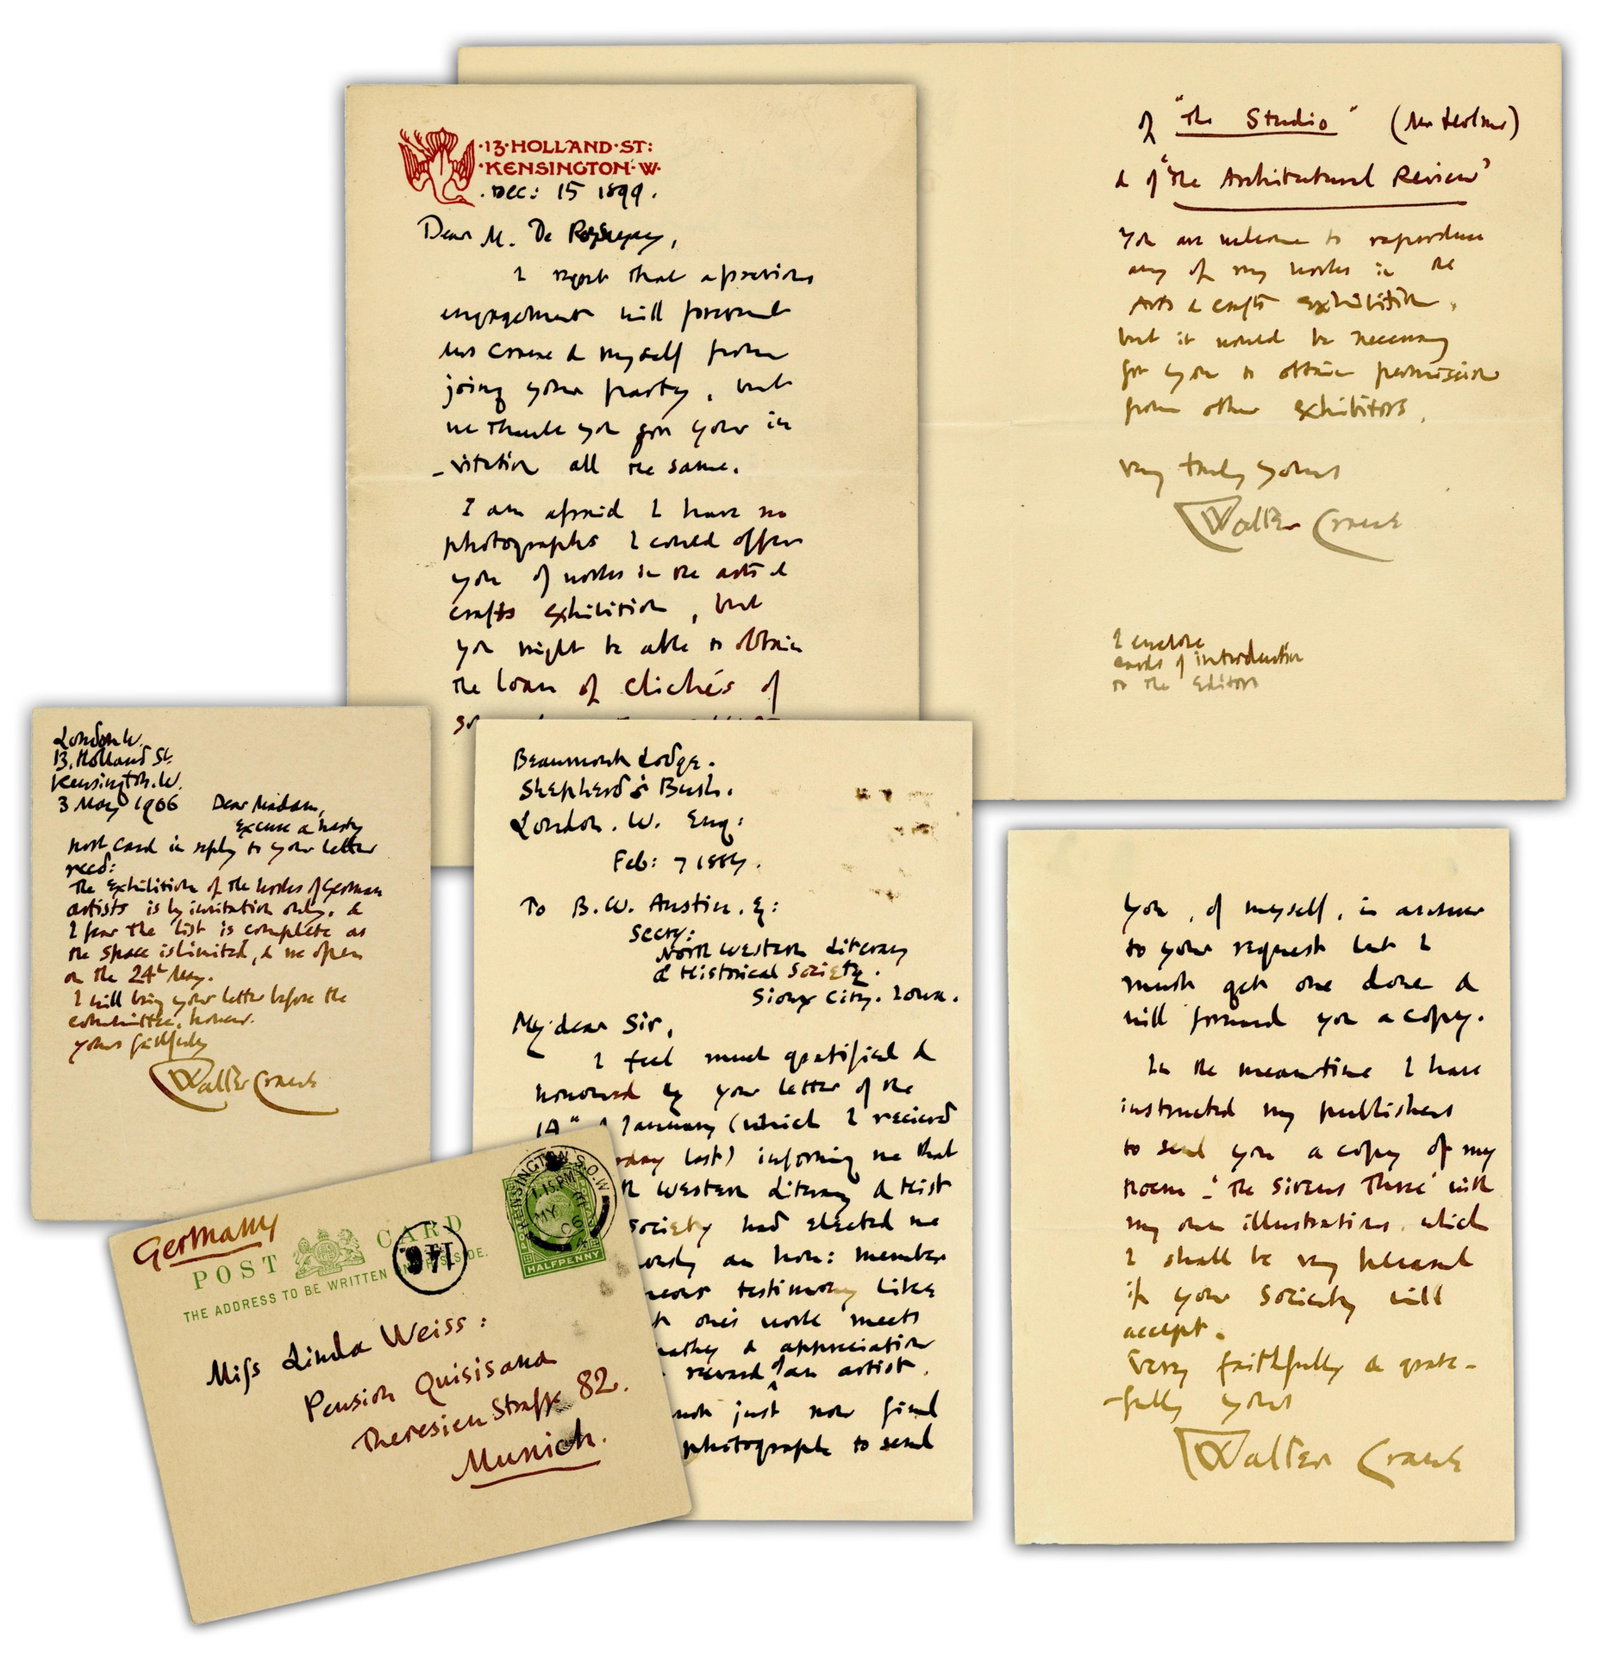 ·13·HOLLAND·ST:
·KENSINGTON·W·
Dec: 15 1899.
Dear M. De
I regret that a previous
engagement will prevent
Mrs Crane & myself from
joing your party, but
we thank you for your in
-vitation all the same.
I am afraid I have no
photographs I could offer
you of works in the arts &
crafts exhibition, but
you might be able to obtain
the loan of clichés of
of "The Studio" (Mr Holme)
& of "The Architectural Review"
You are welcome to reproduce
any of my works in the
Arts & Crafts exhibition,
but it would be necessary
for you to obtain permission
from other exhibitors.
Very truly yours
Walter Crane
I enclose
cards of introduction
to the Editors
London W.
13, Holland St.
Kensington. W.
3 May 1906 Dear Madam,
Excuse a hasty
post card in reply to your letter
recd:
The Exhibition of the works of German
artists is by invitation only, &
I fear the list is complete as
the space is limited, & we open
on the 24th May.
I will bring your letter before the
committee, however.
Yours faithfully
Walter Crane
Beaumont Lodge.
Shepherd's Bush.
London. W. Eng:
Feb: 7
To B.W. Austin. E:
Secry:
North Western Literary
& Historical Society.
Sioux City. Iowa.
My dear Sir,
I feel much gratified &
honoured by your letter of the
January (which I recieved
last) informing me that
Western Literary & Hist
society had elected me
an hon: member
testimony likes
one's work meets
& appreciation
reward of an artist.
just now find
photograph to send
you, of myself, in answer
to your request but I
must get one done &
will forward you a copy.
In the meantime I have
instructed my publishers
to send you a copy of my
Poem - 'The Sirens Three' with
my own illustrations, which
I shall be very pleased
if your Society will
accept.
Very faithfully & grate-
-fully yours
Walter Crane
Germany
POST CARD
THE ADDRESS TO BE WRITTEN SIDE.
KENSINGTON S.O.W
1.15 PM
MY
06
HALFPENNY
Miss Linda Weiss:
Pension Quisisana
Theresien Strasse 82.
Munich.